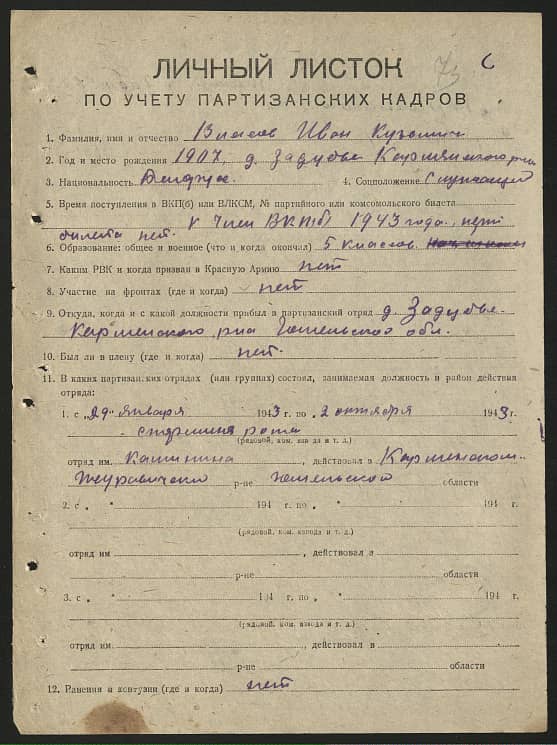 73 6
ЛИЧНЫЙ ЛИСТОК
ПО УЧЕТУ ПАРТИЗАНСКИХ КАДРОВ
1. Фамилия, имя и отчество Власов Иван Кузьмич
2. Год и место рождения 1907, д. Задубье Кормянского р-на
3. Национальность Белорус. 4. Соцположение Служащий
5. Время поступления в ВКП(б) или ВЛКСМ, № партийного или комсомольского билета
Член ВКПб 1943 года, парт
билета нет.
6. Образование: общее и военное (что и когда окончил) 5 классов.
7. Каким РВК и когда призван в Красную Армию нет
8. Участие на фронтах (где и когда) нет
9. Откуда, когда и с какой должности прибыл в партизанский отряд д. Задубье
Кормянского р-на Гомельской обл.
10. Был ли в плену (где и когда) нет.
11. В каких партизанских отрядах (или группах) состоял, занимаемая должность и район действия
отряда:
1. с „29" января 1943 г. по „2 октября 1943 г.
старшина рота
(рядовой, ком. взвода и т. д.)
отряд им. Калинина, действовал в Кормянском
Журавичском р-не Гомельской области
2. с „ " 194 г. по „ " 194 г.
(рядовой, ком. взвода и т. д.)
отряд им , действовал в
р-не области
3. с „ " 194 г. по „ " 194 г.
(рядовой, ком. взвода и т. д.)
отряд им. , действовал в
р-не области
12. Ранения и контузии (где и когда) нет